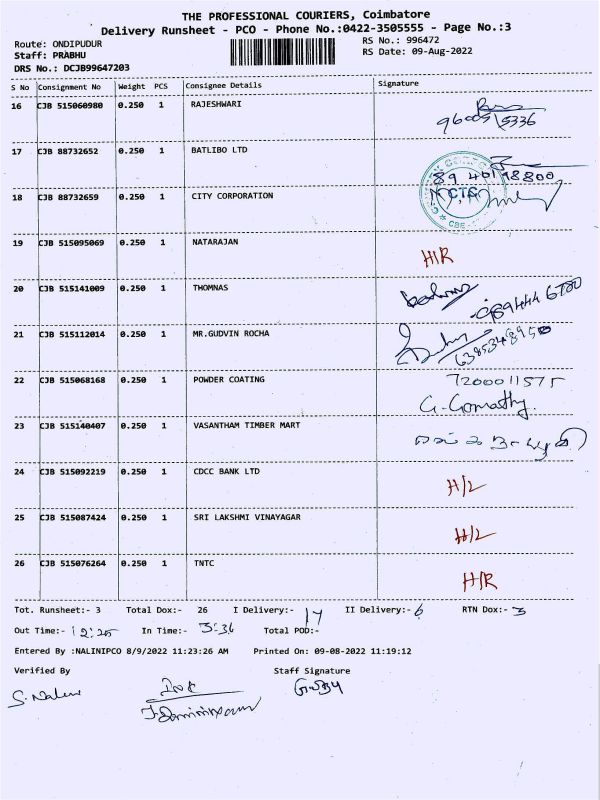 THE PROFESSIONAL COURIERS, Coimbatore
Delivery Runsheet - PCO - Phone No.:0422-3505555 - Page No.:3
Route: ONDIPUDUR RS No.: 996472
Staff: PRABHU RS Date: 09-Aug-2022
DRS No.: DCJB99647203
S No Consignment No Weight PCS Consignee Details Signature
16 CJB 515060980 0.250 1 RAJESHWARI
17 CJB 88732652 0.250 1 BATLIBO LTD
18 CJB 88732659 0.250 1 CITY CORPORATION
19 CJB 515095069 0.250 1 NATARAJAN H/R
20 CJB 515141009 0.250 1 THOMNAS
21 CJB 515112014 0.250 1 MR.GUDVIN ROCHA 6385348950
22 CJB 515068168 0.250 1 POWDER COATING 7200011575
G. Gomathy.
23 CJB 515140407 0.250 1 VASANTHAM TIMBER MART
24 CJB 515092219 0.250 1 CDCC BANK LTD H/L
25 CJB 515087424 0.250 1 SRI LAKSHMI VINAYAGAR H/L
26 CJB 515076264 0.250 1 TNTC H/R
Tot. Runsheet:- 3 Total Dox:- 26 I Delivery:- 17 II Delivery:- 6 RTN Dox:- 3
Out Time:- 12:25 In Time:- 3:36 Total POD:-
Entered By :NALINIPCO 8/9/2022 11:23:26 AM Printed On: 09-08-2022 11:19:12
Verified By Staff Signature